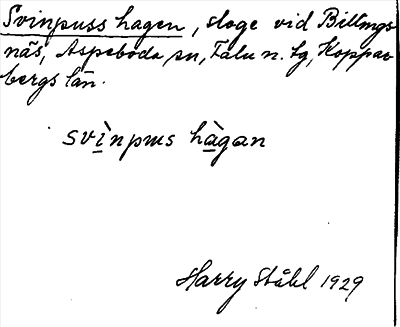 Svinpuss hagen, sloge vid Billings
näs, Aspeboda sn, Falu n. tg, Koppar
bergs län.
svìnpus hàgan
Harry Ståhl 1929